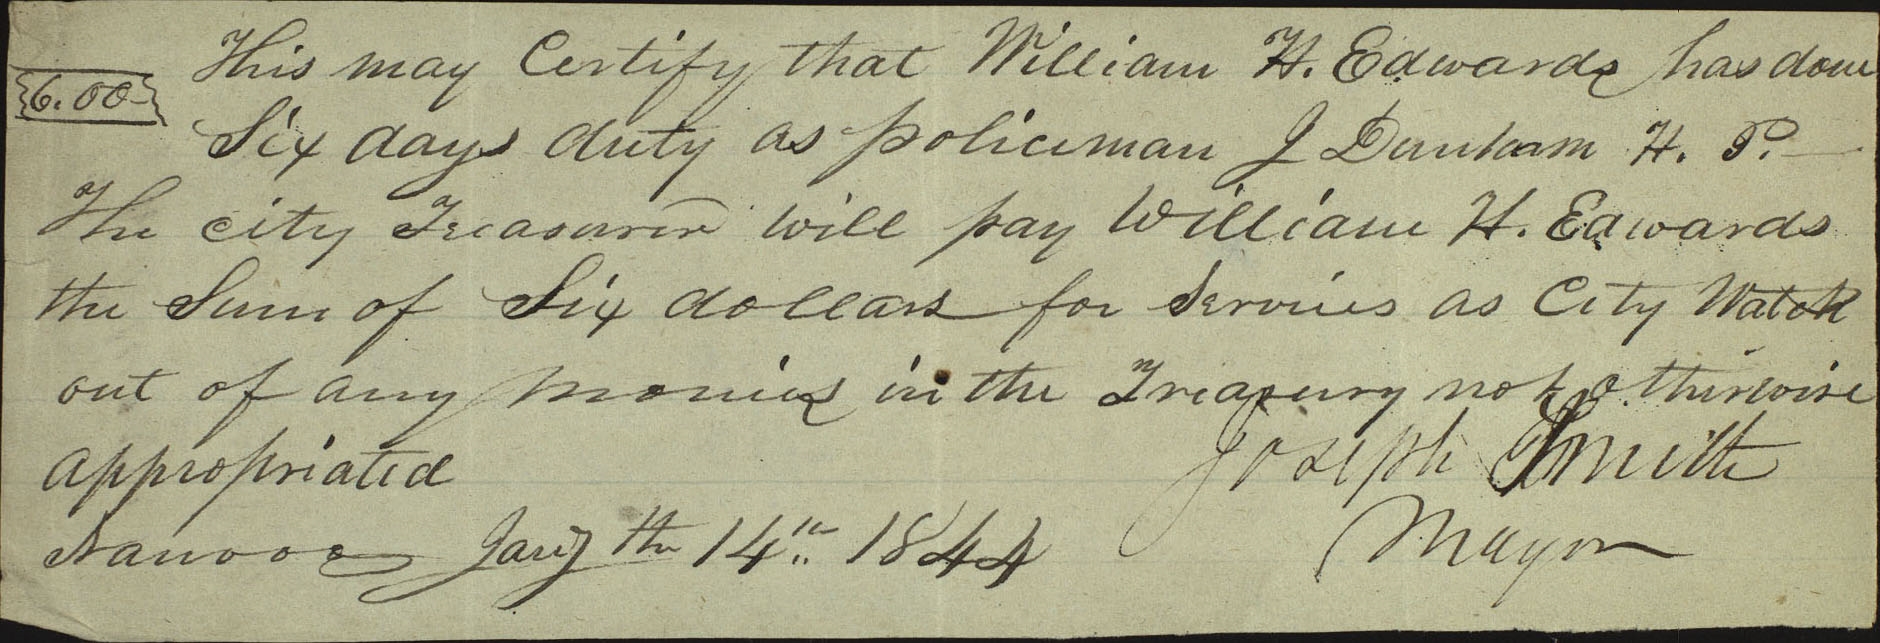 This may Certify that William H. Edwards has done
6.00
Six days duty as policeman J Dunham H. P.
The city Treasurer will pay William H. Edwards
the Sum of Six dollars for Services as City Watch
out of any monies in the Treasury not otherwise
appropriated
Joseph Smith
Nauvoo Jany the 14th 1844
Mayor